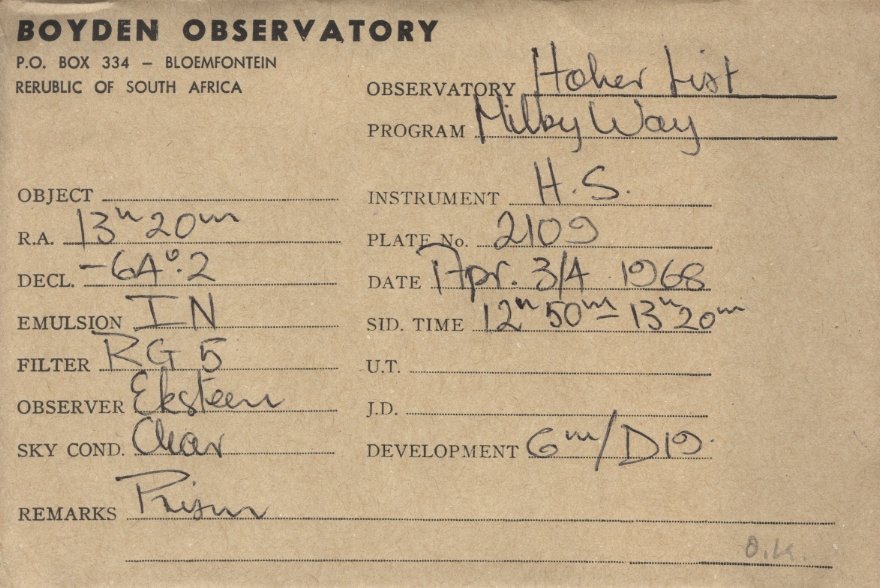 BOYDEN OBSERVATORY
P.O. BOX 334 – BLOEMFONTEIN
RERUBLIC OF SOUTH AFRICA
OBSERVATORY Hoher List
PROGRAM Milky Way
OBJECT
INSTRUMENT H.S.
R.A. 13h 20m
PLATE No. 2109
DECL. -64°.2
DATE Apr. 3/4 1968
EMULSION IN
SID. TIME 12h 50m – 13h 20m
FILTER RG 5
U.T.
OBSERVER Eksteen
J.D.
SKY COND. Clear
DEVELOPMENT 6m/D19.
REMARKS Prism